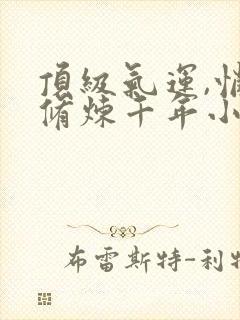 頂級氣運,悄
脩煉千年小
布雷斯特-利特